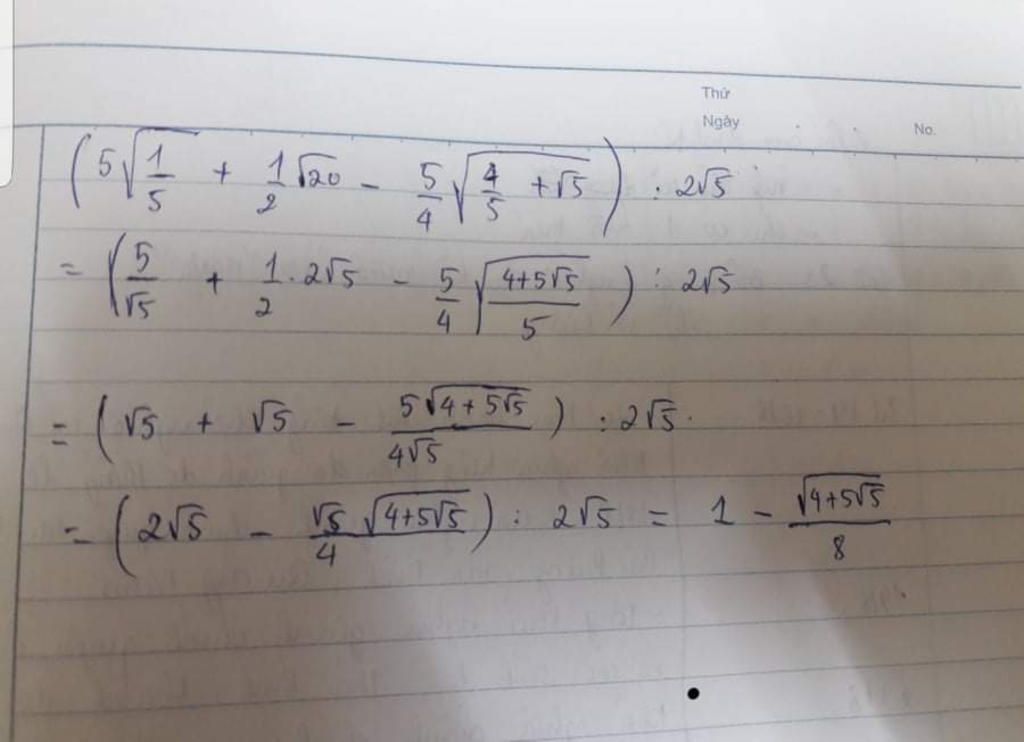 Thứ
Ngày
No.
(5√(1/5) + 1/2 √20 - 5/4 √(4/5 + √5)) : 2√5
= (5/√5 + 1/2 . 2√5 - 5/4 √((4+5√5)/5)) : 2√5
= (√5 + √5 - 5√(4+5√5)/(4√5)) : 2√5.
= (2√5 - √5/4 √(4+5√5)) : 2√5 = 1 - √(4+5√5)/8